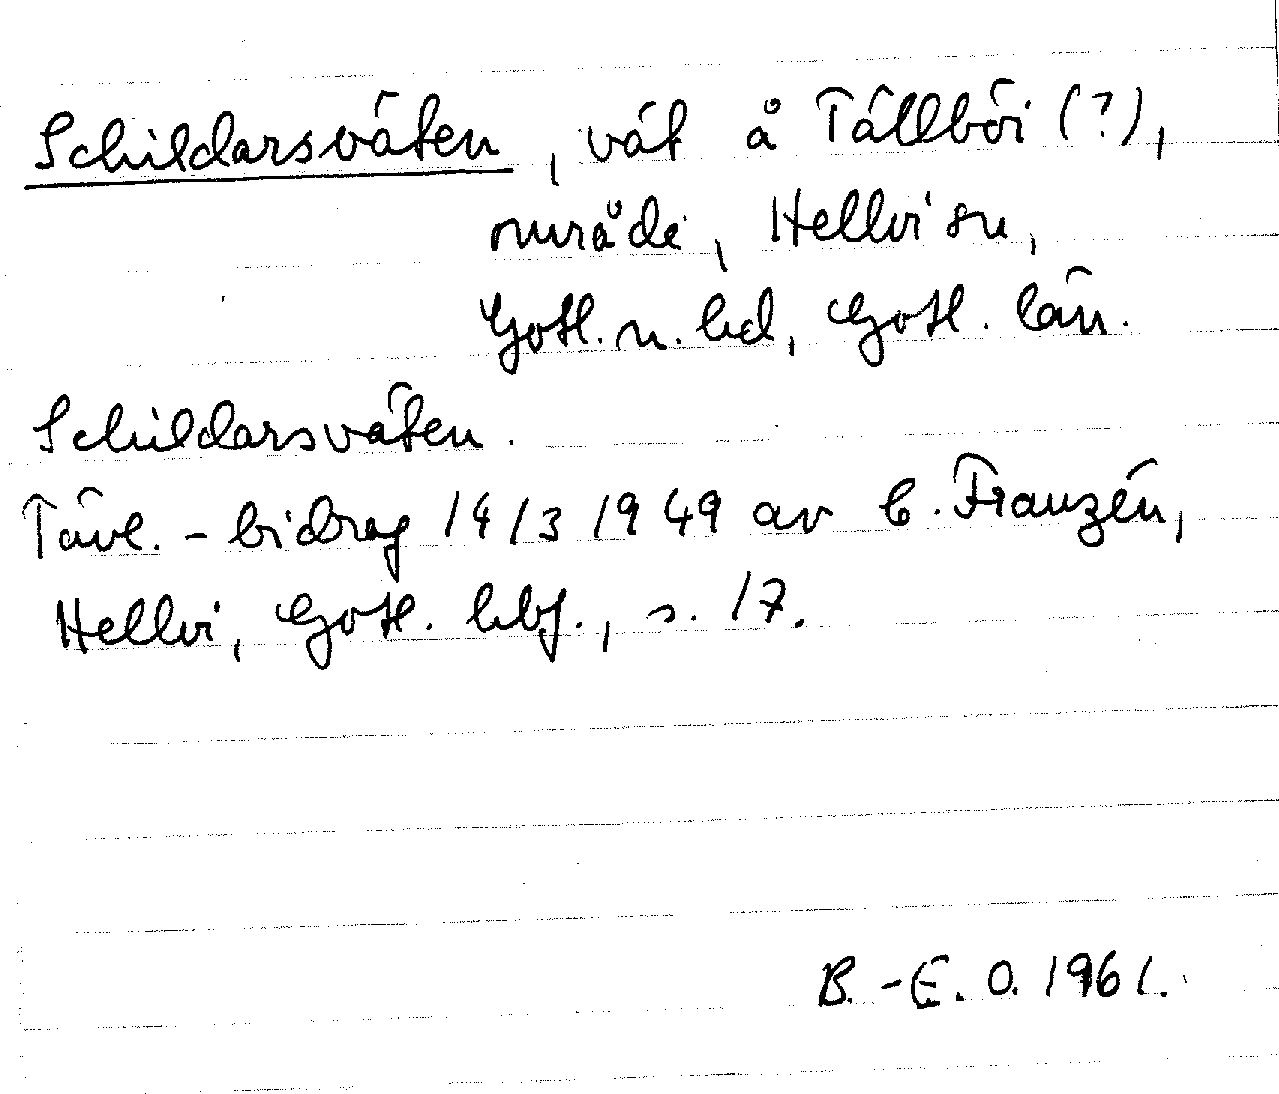 Schildarsväten, vät å Tällböi (?),
område, Hellvi sn,
Gotl. n. hd, Gotl. län.
Schildarsväten.
Tävl.-bidrag 14/3 1949 av C. Franzén,
Hellvi, Gotl. hbf., s. 17.
B.-E. O. 1961.